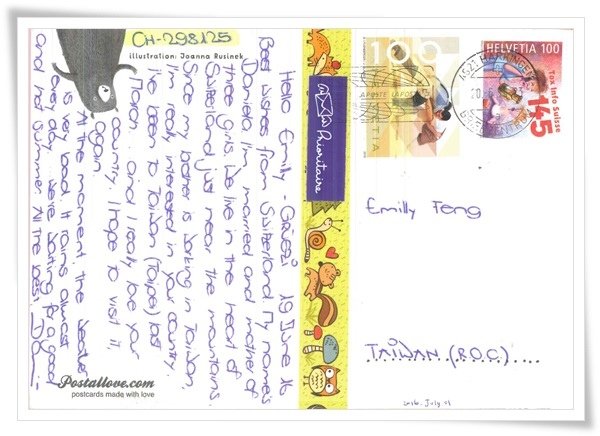 CH-298125
illustration: Joanna Rusinek
Hello Emily - Grüezi 19 June 16
Best wishes from Switzerland. My name's
Daniela, I'm married and mother of
three girls. We live in the heart of
Switzerland just near the mountains.
Since my brother is working in Taiwan,
I'm really interested in your country.
I've been to Taiwan (Taipei) last
March and I really love your
country. I hope to visit it
again.
At the moment, the weather
is very bad. It rains almost
every day. We're waiting for a good
and hot summer. All the best,
Postallove.com
postcards made with love
Prioritaire
100
HELVETIA
HELVETIA 100
Tox Info Suisse
145
Emilly Feng
TAIWAN (R.O.C)....
2016. July. 01